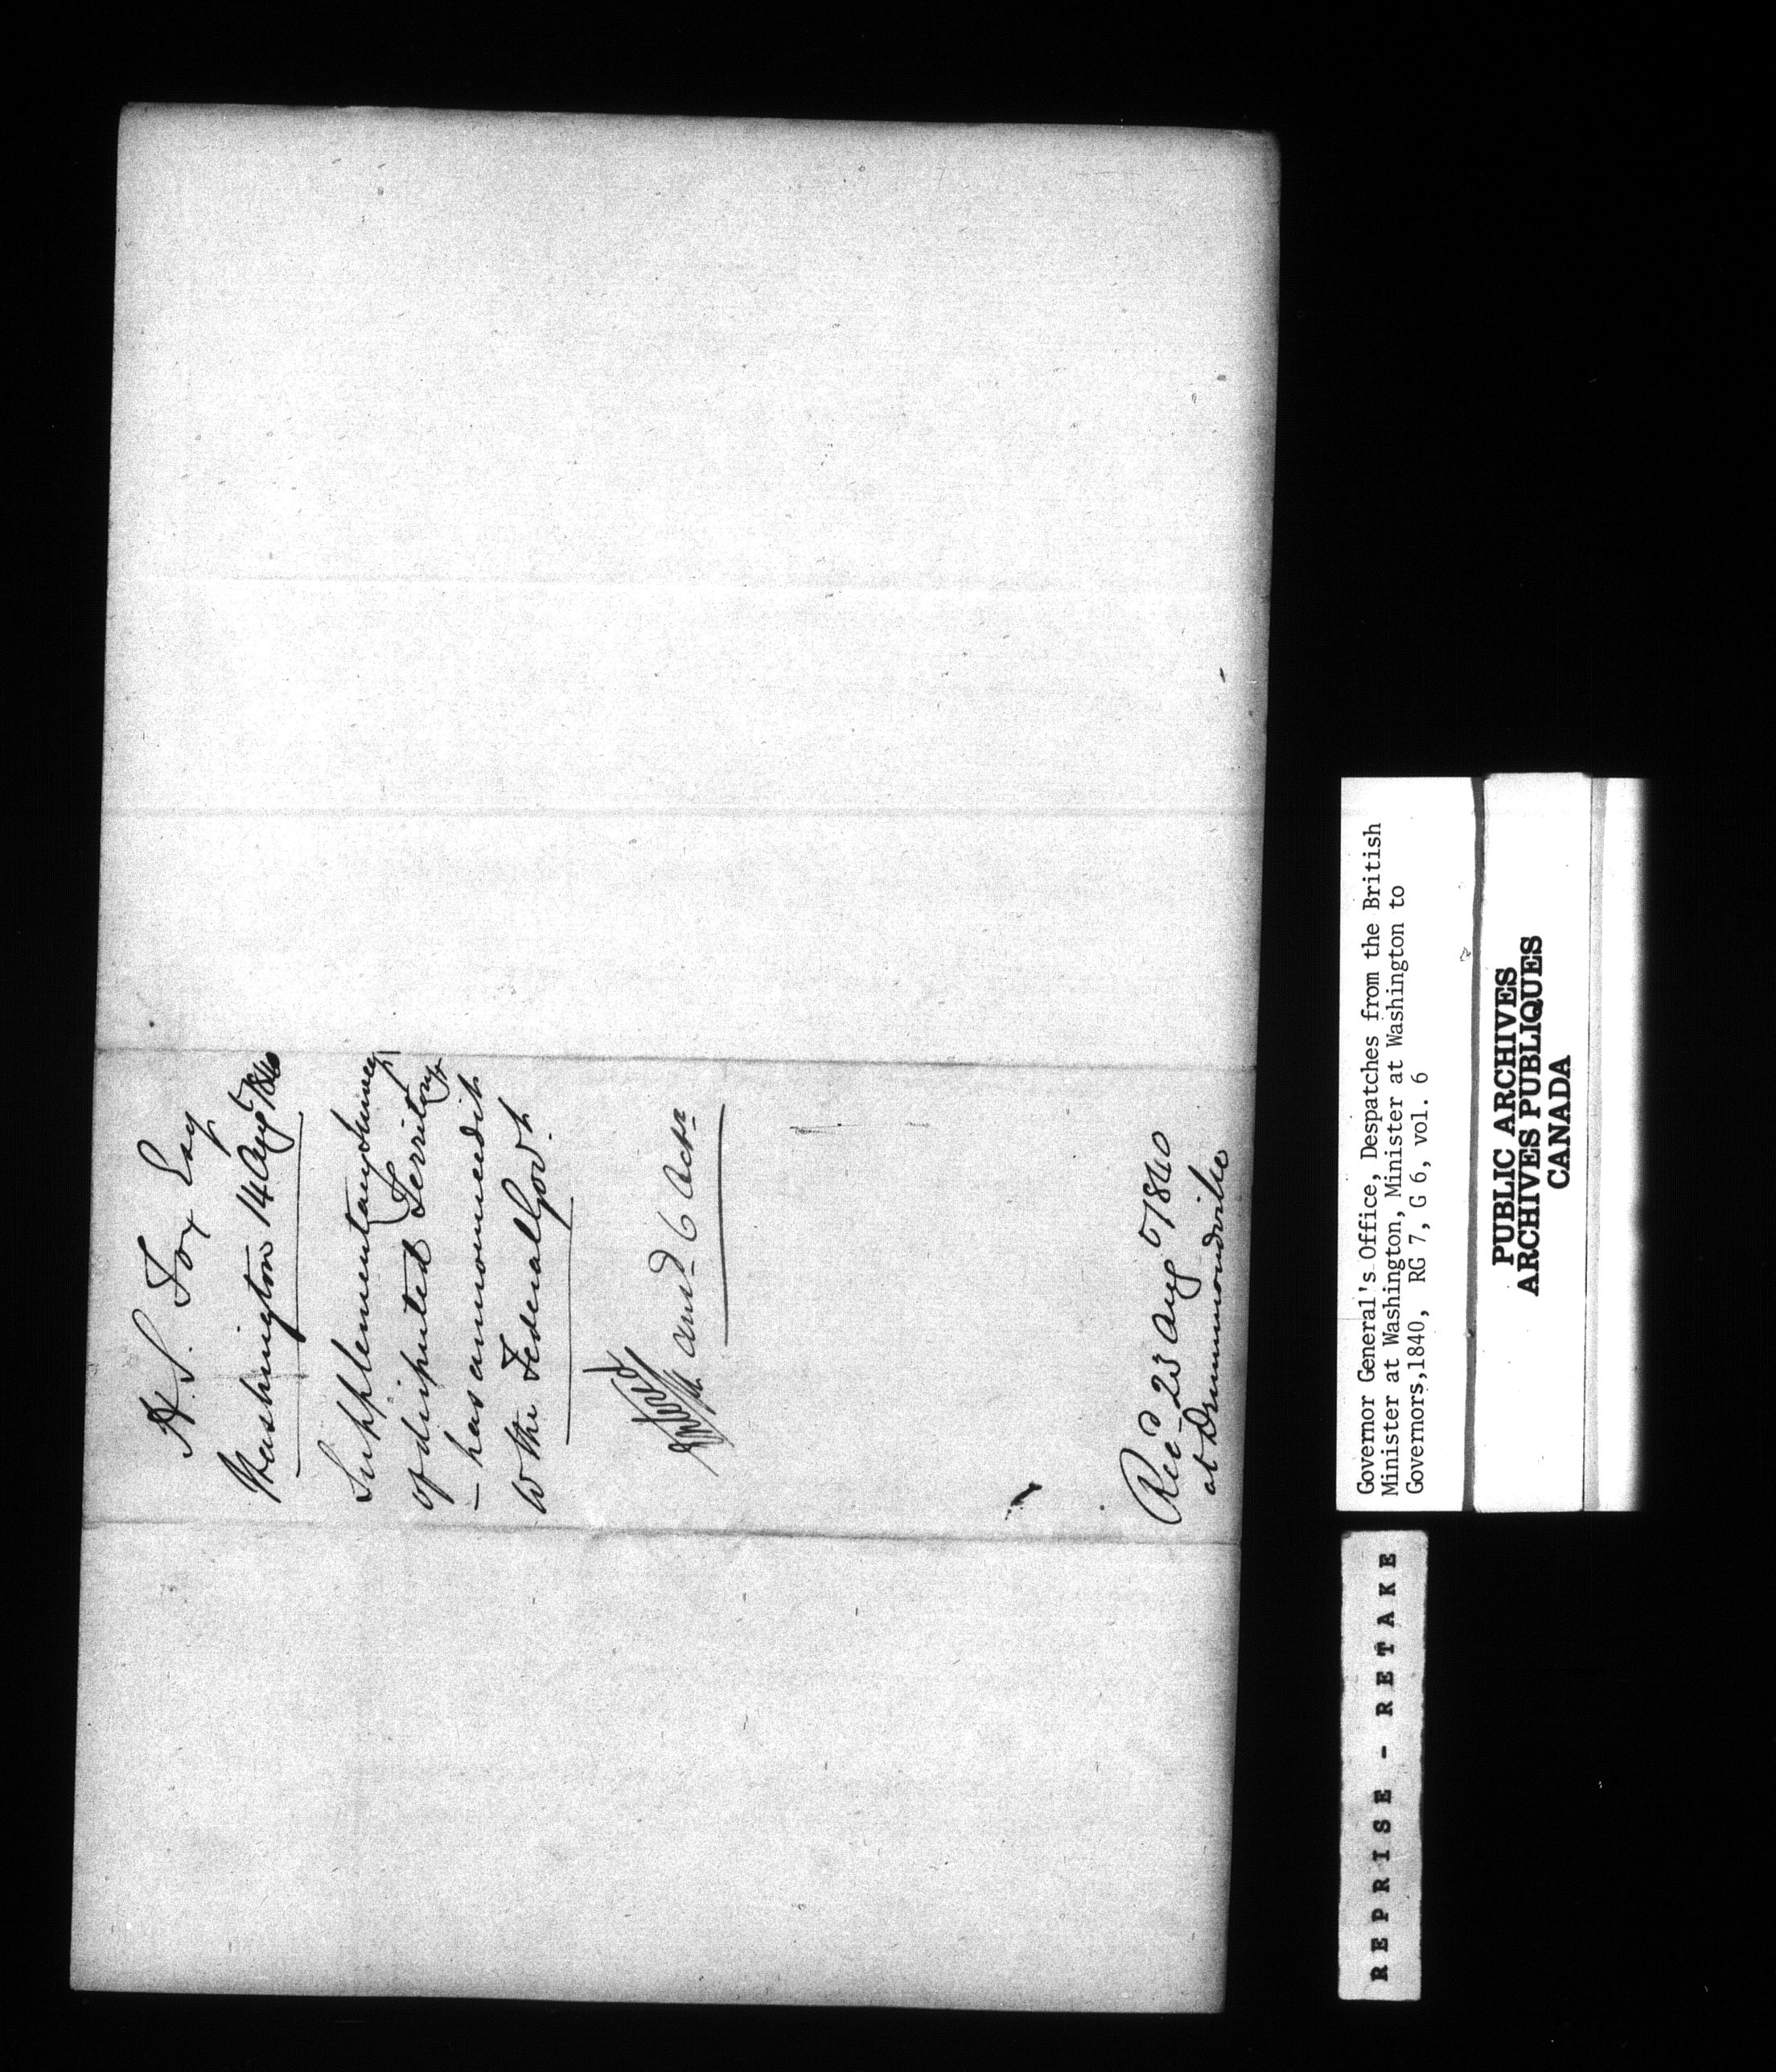 H. S. Fox Esq
Washington 14 Augt 1840
Supplementary Survey
of disputed Territory
- has announced it
to the Federal Govt.
ansd 6 Octr
Recd 23 Augt 1840
at Drummondville
Governor General's Office, Despatches from the British
Minister at Washington, Minister at Washington to
Governors,1840, RG 7, G 6, vol. 6
PUBLIC ARCHIVES
ARCHIVES PUBLIQUES
CANADA
REPRISE - RETAKE